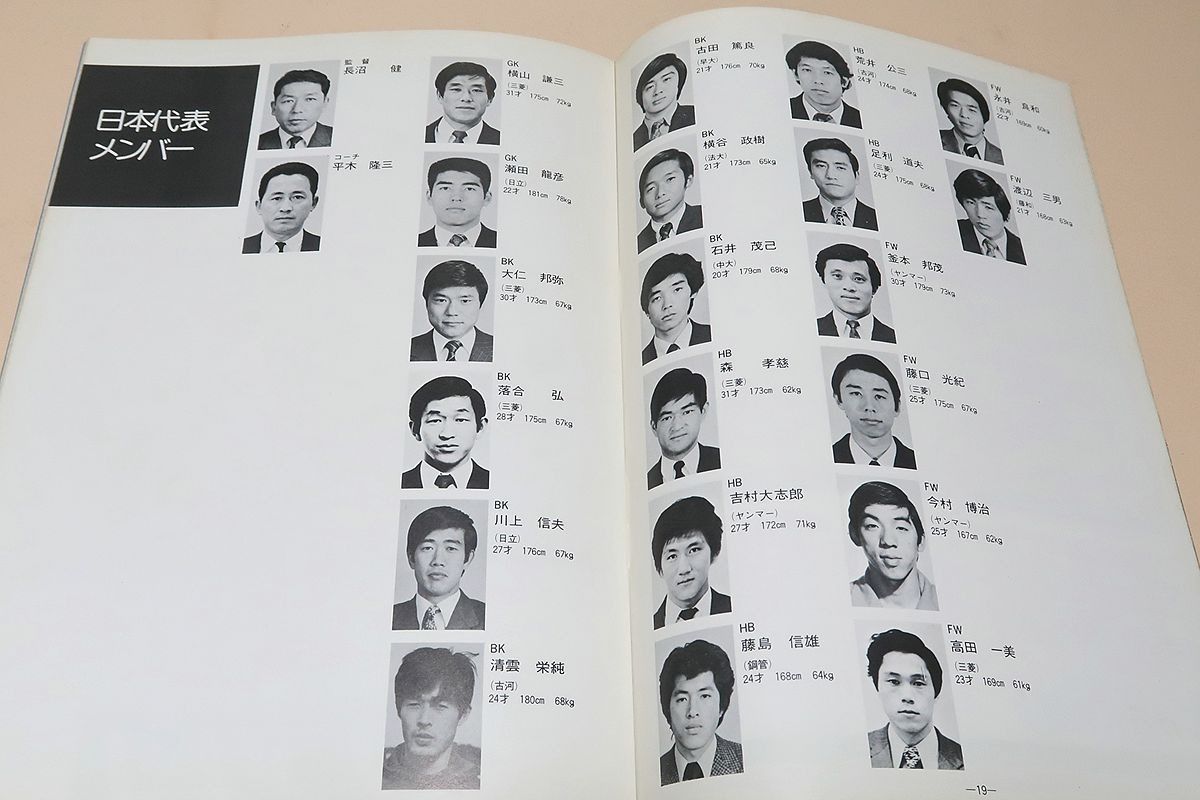 日本代表
メンバー
監督
長沼 健
コーチ
平木 隆三
GK
横山 謙三
(三菱)
31才 175cm 72kg
GK
瀬田 龍彦
(日立)
22才 181cm 78kg
BK
大仁 邦弥
(三菱)
30才 173cm 67kg
BK
落合 弘
(三菱)
28才 175cm 67kg
BK
川上 信夫
(日立)
27才 176cm 67kg
BK
清雲 栄純
(古河)
24才 180cm 68kg
BK
古田 篤良
(早大)
21才 176cm 70kg
BK
横谷 政樹
(法大)
21才 173cm 65kg
BK
石井 茂己
(中大)
20才 179cm 68kg
HB
森 孝慈
(三菱)
31才 173cm 62kg
HB
吉村大志郎
(ヤンマー)
27才 172cm 71kg
HB
藤島 信雄
(鋼管)
24才 168cm 64kg
HB
荒井 公三
(古河)
24才 174cm 68kg
HB
足利 道夫
(三菱)
24才 175cm 68kg
FW
釜本 邦茂
(ヤンマー)
30才 179cm 73kg
FW
藤口 光紀
(三菱)
25才 175cm 67kg
FW
今村 博治
(ヤンマー)
25才 167cm 62kg
FW
高田 一美
(三菱)
23才 169cm 61kg
FW
永井 良和
(古河)
22才 169cm 60kg
FW
渡辺 三男
(藤和)
21才 168cm 63kg
—19—